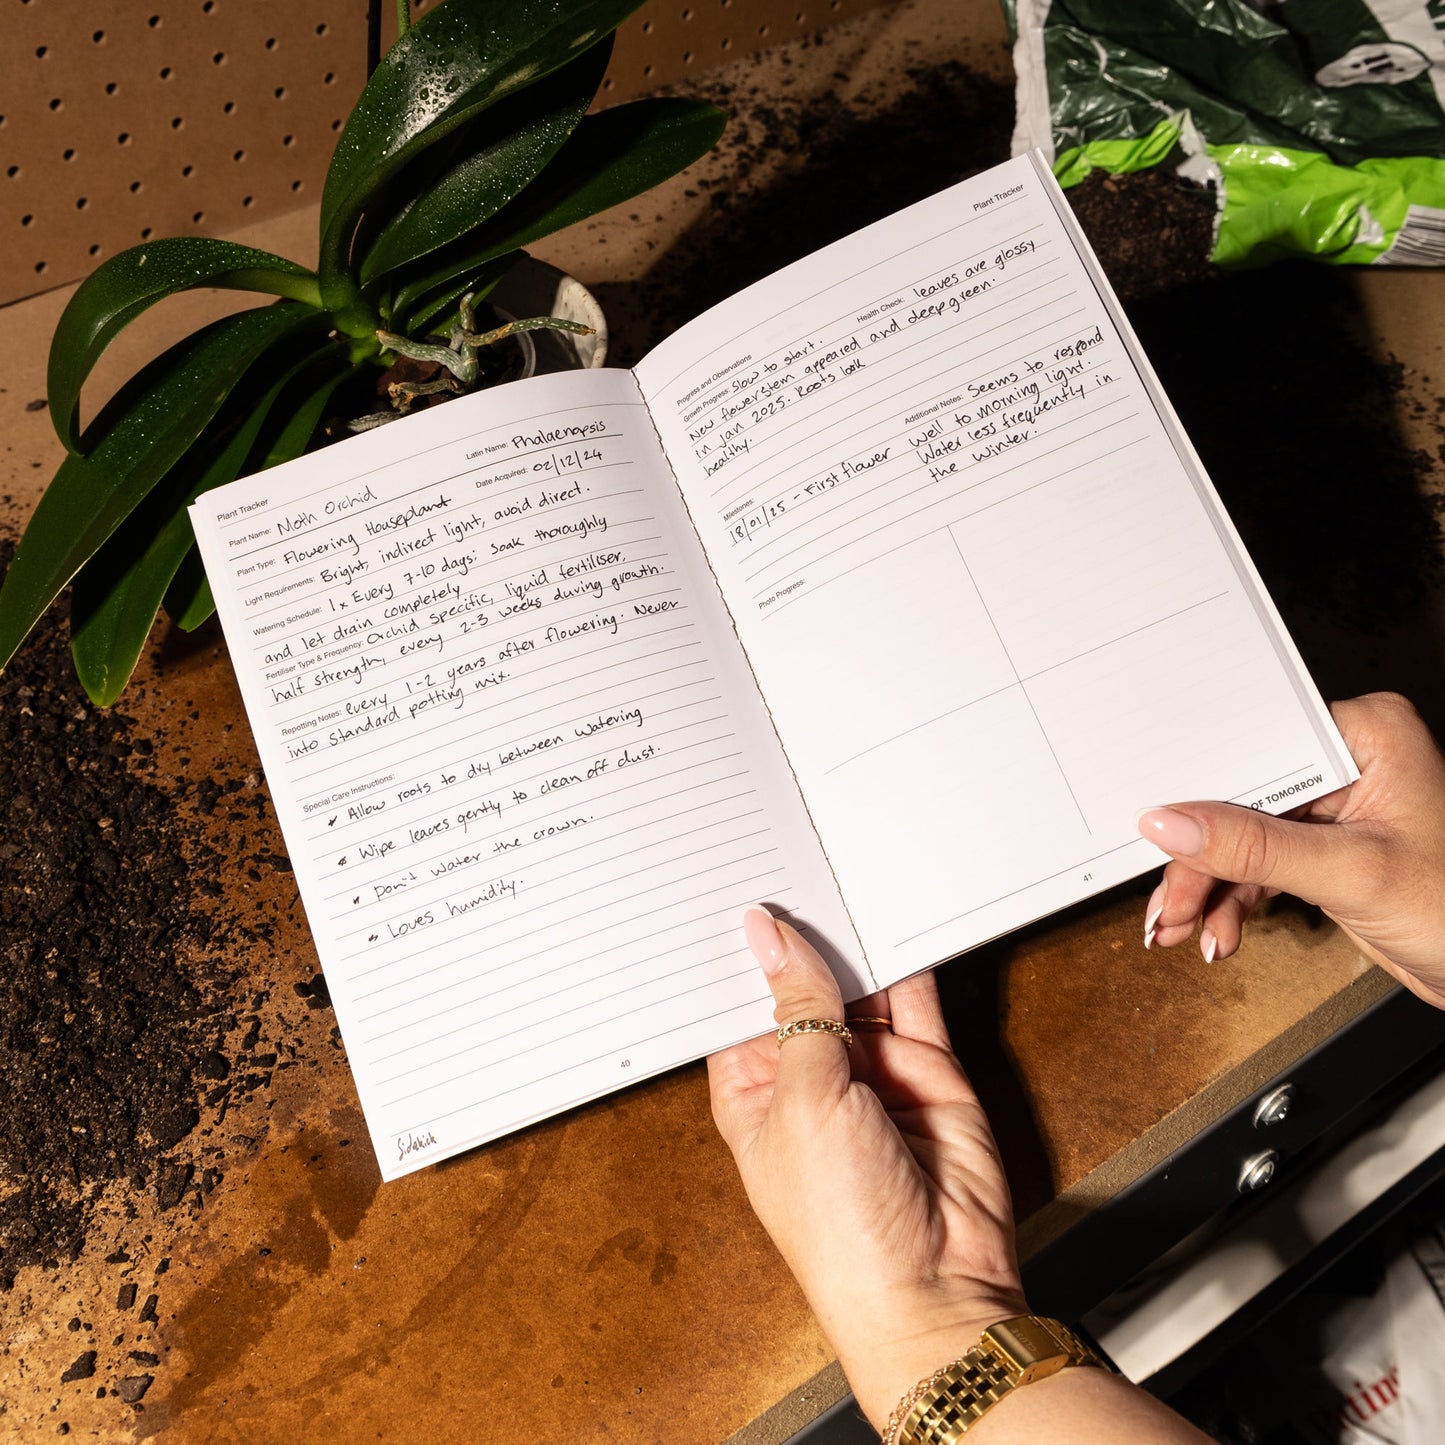 Plant Tracker
Plant Name: Moth Orchid
Latin Name: Phalaenopsis
Plant Type: Flowering Houseplant
Date Acquired: 02/12/24
Light Requirements: Bright, indirect light, avoid direct.
Watering Schedule: 1 x Every 7-10 days: Soak thoroughly
and let drain completely
Fertiliser Type & Frequency: Orchid Specific, liquid fertiliser,
half strength, every 2-3 weeks during growth.
Repotting Notes: every 1-2 years after flowering. Never
into standard potting mix.
Special Care Instructions:
Allow roots to dry between watering
Wipe leaves gently to clean off dust.
Don't water the crown.
Loves humidity.
40
Sidekick
Plant Tracker
Progress and Observations
Growth Progress: Slow to start.
New flowerstem appeared
in Jan 2025. Roots look
healthy.
Health Check: leaves are glossy
and deep green.
Milestones:
18/01/25 - First flower
Additional Notes: Seems to respond
well to morning light.
Water less frequently in
the winter.
Photo Progress:
OF TOMORROW
41